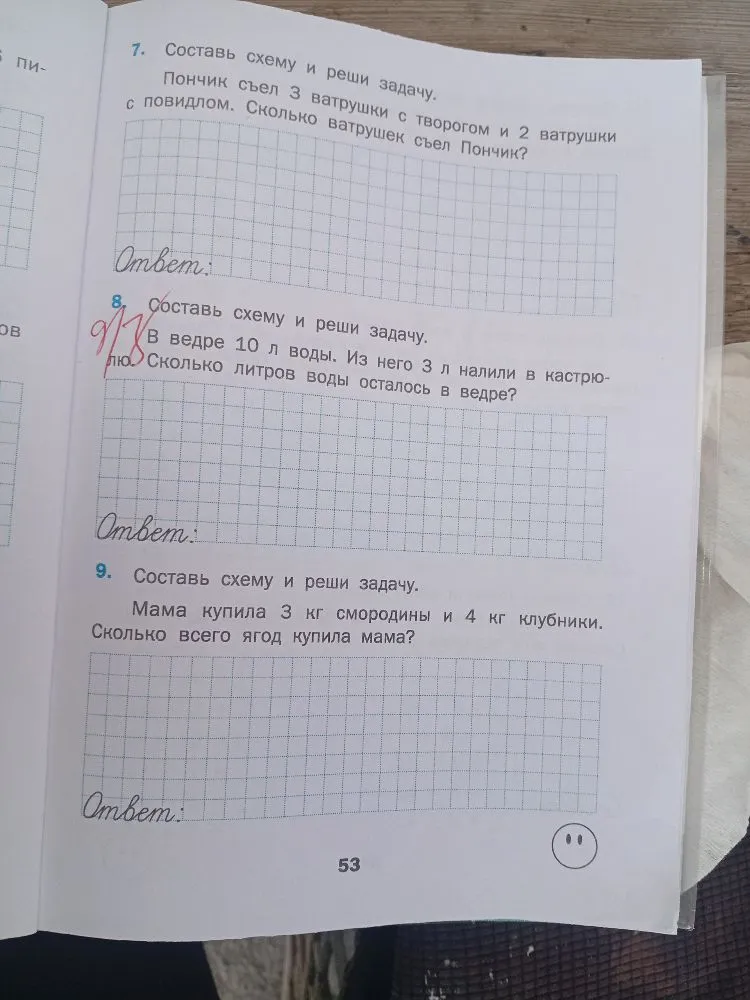 пи-
7. Составь схему и реши задачу.
Пончик съел 3 ватрушки с творогом и 2 ватрушки
с повидлом. Сколько ватрушек съел Пончик?
Ответ:
8. Составь схему и реши задачу.
ов
В ведре 10 л воды. Из него 3 л налили в кастрю-
лю. Сколько литров воды осталось в ведре?
Ответ:
9. Составь схему и реши задачу.
Мама купила 3 кг смородины и 4 кг клубники.
Сколько всего ягод купила мама?
Ответ:
53